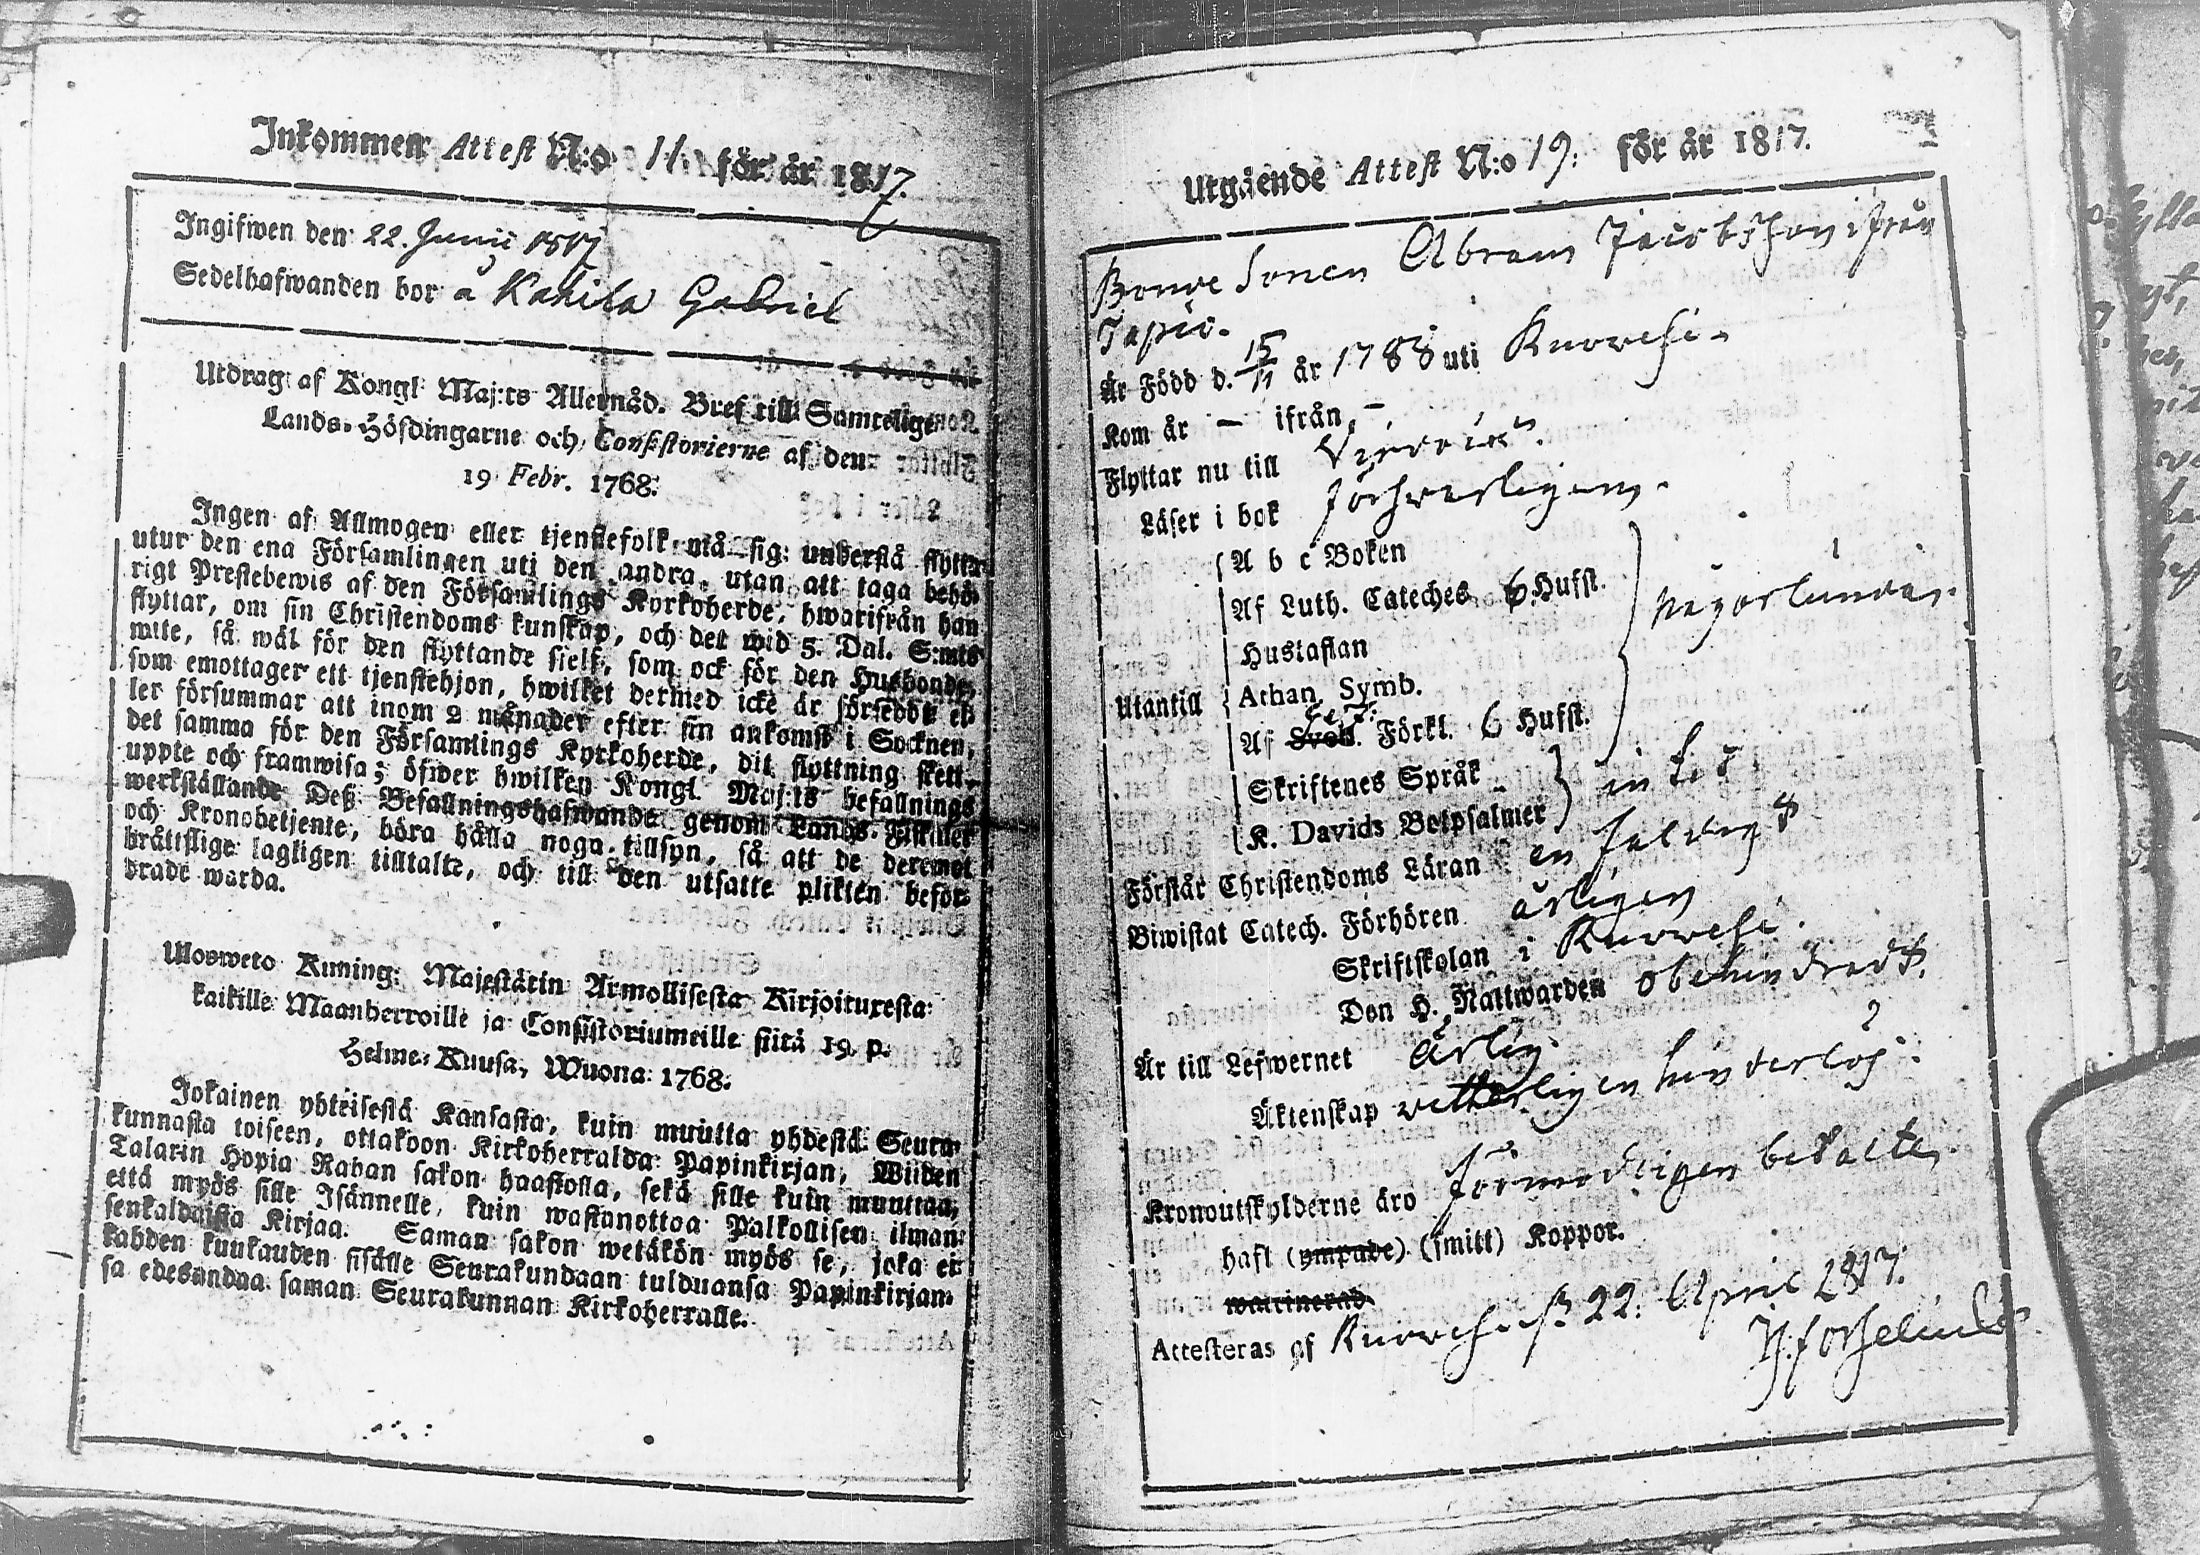 Inkommen Attest N:o 11. för år 1817.
Ingifwen den 22. Junii 1817
Sedelhafwanden bor å Kahila Gabriel
Utdrag af Kongl Maj:ts Allernåd. Bref till Samtelige
Lands-Höfdingarne och Consistorierne af den
19 Febr. 1768.
Ingen af Allmogen eller tjenstefolk må sig understå flytta
utur den ena Församlingen uti den andra, utan att taga behö-
rigt Prestebewis af den Församlings Kyrkoherde, hwarifrån han
flyttar, om sin Christendoms kunskap, och det wid 5. Dal. S:mts
wite, så wäl för den flyttande sielf, som ock för den Husbonde,
som emottager ett tjenstehjon, hwilket dermed icke är försedde el-
ler försummar att inom 2 månader efter sin ankomst i Socknen,
det samma för den Församlings Kyrkoherde, dit flyttning skett,
uppte och framwisa; öfwer hwilken Kongl Maj:ts befallnings
werkställande Deß Befallningshafwande genom Lands-Fiskaler
och Kronobetjente, böra hålla noga tillsyn, så att de deremot
bråttslige lagligen tilltalte, och till den utsatte plikten beför-
drade warda.
Ulosweto Kuning: Majestätin Armollisesta Kirjoituxesta
kaikille Maanherroille ja Consistoriumeille siitä 19. p.
Helme-Kuusa, Wuona 1768.
Jokainen yhteisestä Kansasta, kuin muutta yhdestä Seura-
kunnasta toiseen, ottakoon Kirkoherralda Papinkirjan, Wiiden
Talarin Hopia Rahan sakon haastolla, sekä sille kuin muuttaa,
että myös sille Isännelle, kuin wastanottaa Palkollisen ilman
senkaldaista Kirjaa. Saman sakon wetäkön myös se, joka ei
kahden kuukauden sisälle Seurakundaan tulduansa Papinkirjan-
sa edesandaa saman Seurakunnan Kirkoherralle.
Utgående Attest N:o 19. för år 1817.
Bonde Sonen Abram Jacobsson ifrån
Tapio.
Är Född d. 15/11 år 1788 uti Kuorvesi.
Kom år – ifrån –
Flyttar nu till
Läser i bok försvarligen.
Utantill
A b c Boken
Af Luth. Cateches 6 Hufst.
Hustaflan
Athan. Symb.
Af Sveb. Förkl. 6 Hufst.
någorlunda.
Skriftenes Språk
K. Davids Botpsalmer
intet
Förstår Christendoms Läran enfaldigt
Biwistat Catech. Förhören årligen
Skriftskolan i Kuorvesi.
Den H. Nattwarden obehindradt.
Är till Lefwernet ärlig.
Äktenskap vetterligen hinderlös.
Kronoutskylderne äro förmodligen betalte.
haft (ympade) (smitt) Koppor.
waccinerad
Attesteras af Kuorvesi d. 22. April 1817.